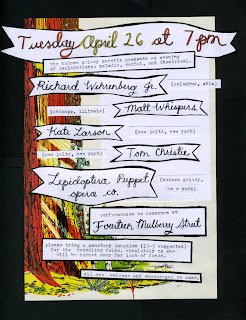 Tuesday April 26 at 7 pm
the hudson galaxy gazette presents an evening
of declarations: melodic, verbal, and theatrical.
Richard Wehrenberg Jr. (columbus, ohio)
(chicago, illinois) Matt Whispers
Kate Larson (new paltz, new york)
(new paltz, new york) Tom Christie
Lepidoptera Puppet (hudson galaxy,
opera co. new york)
performances to commence at
Fourteen Mulberry Street
please bring a monetary donation ($3-5 suggested)
for the traveling folks. absolutely no one
will be turned away for lack of funds.
all are welcome and encouraged to come.